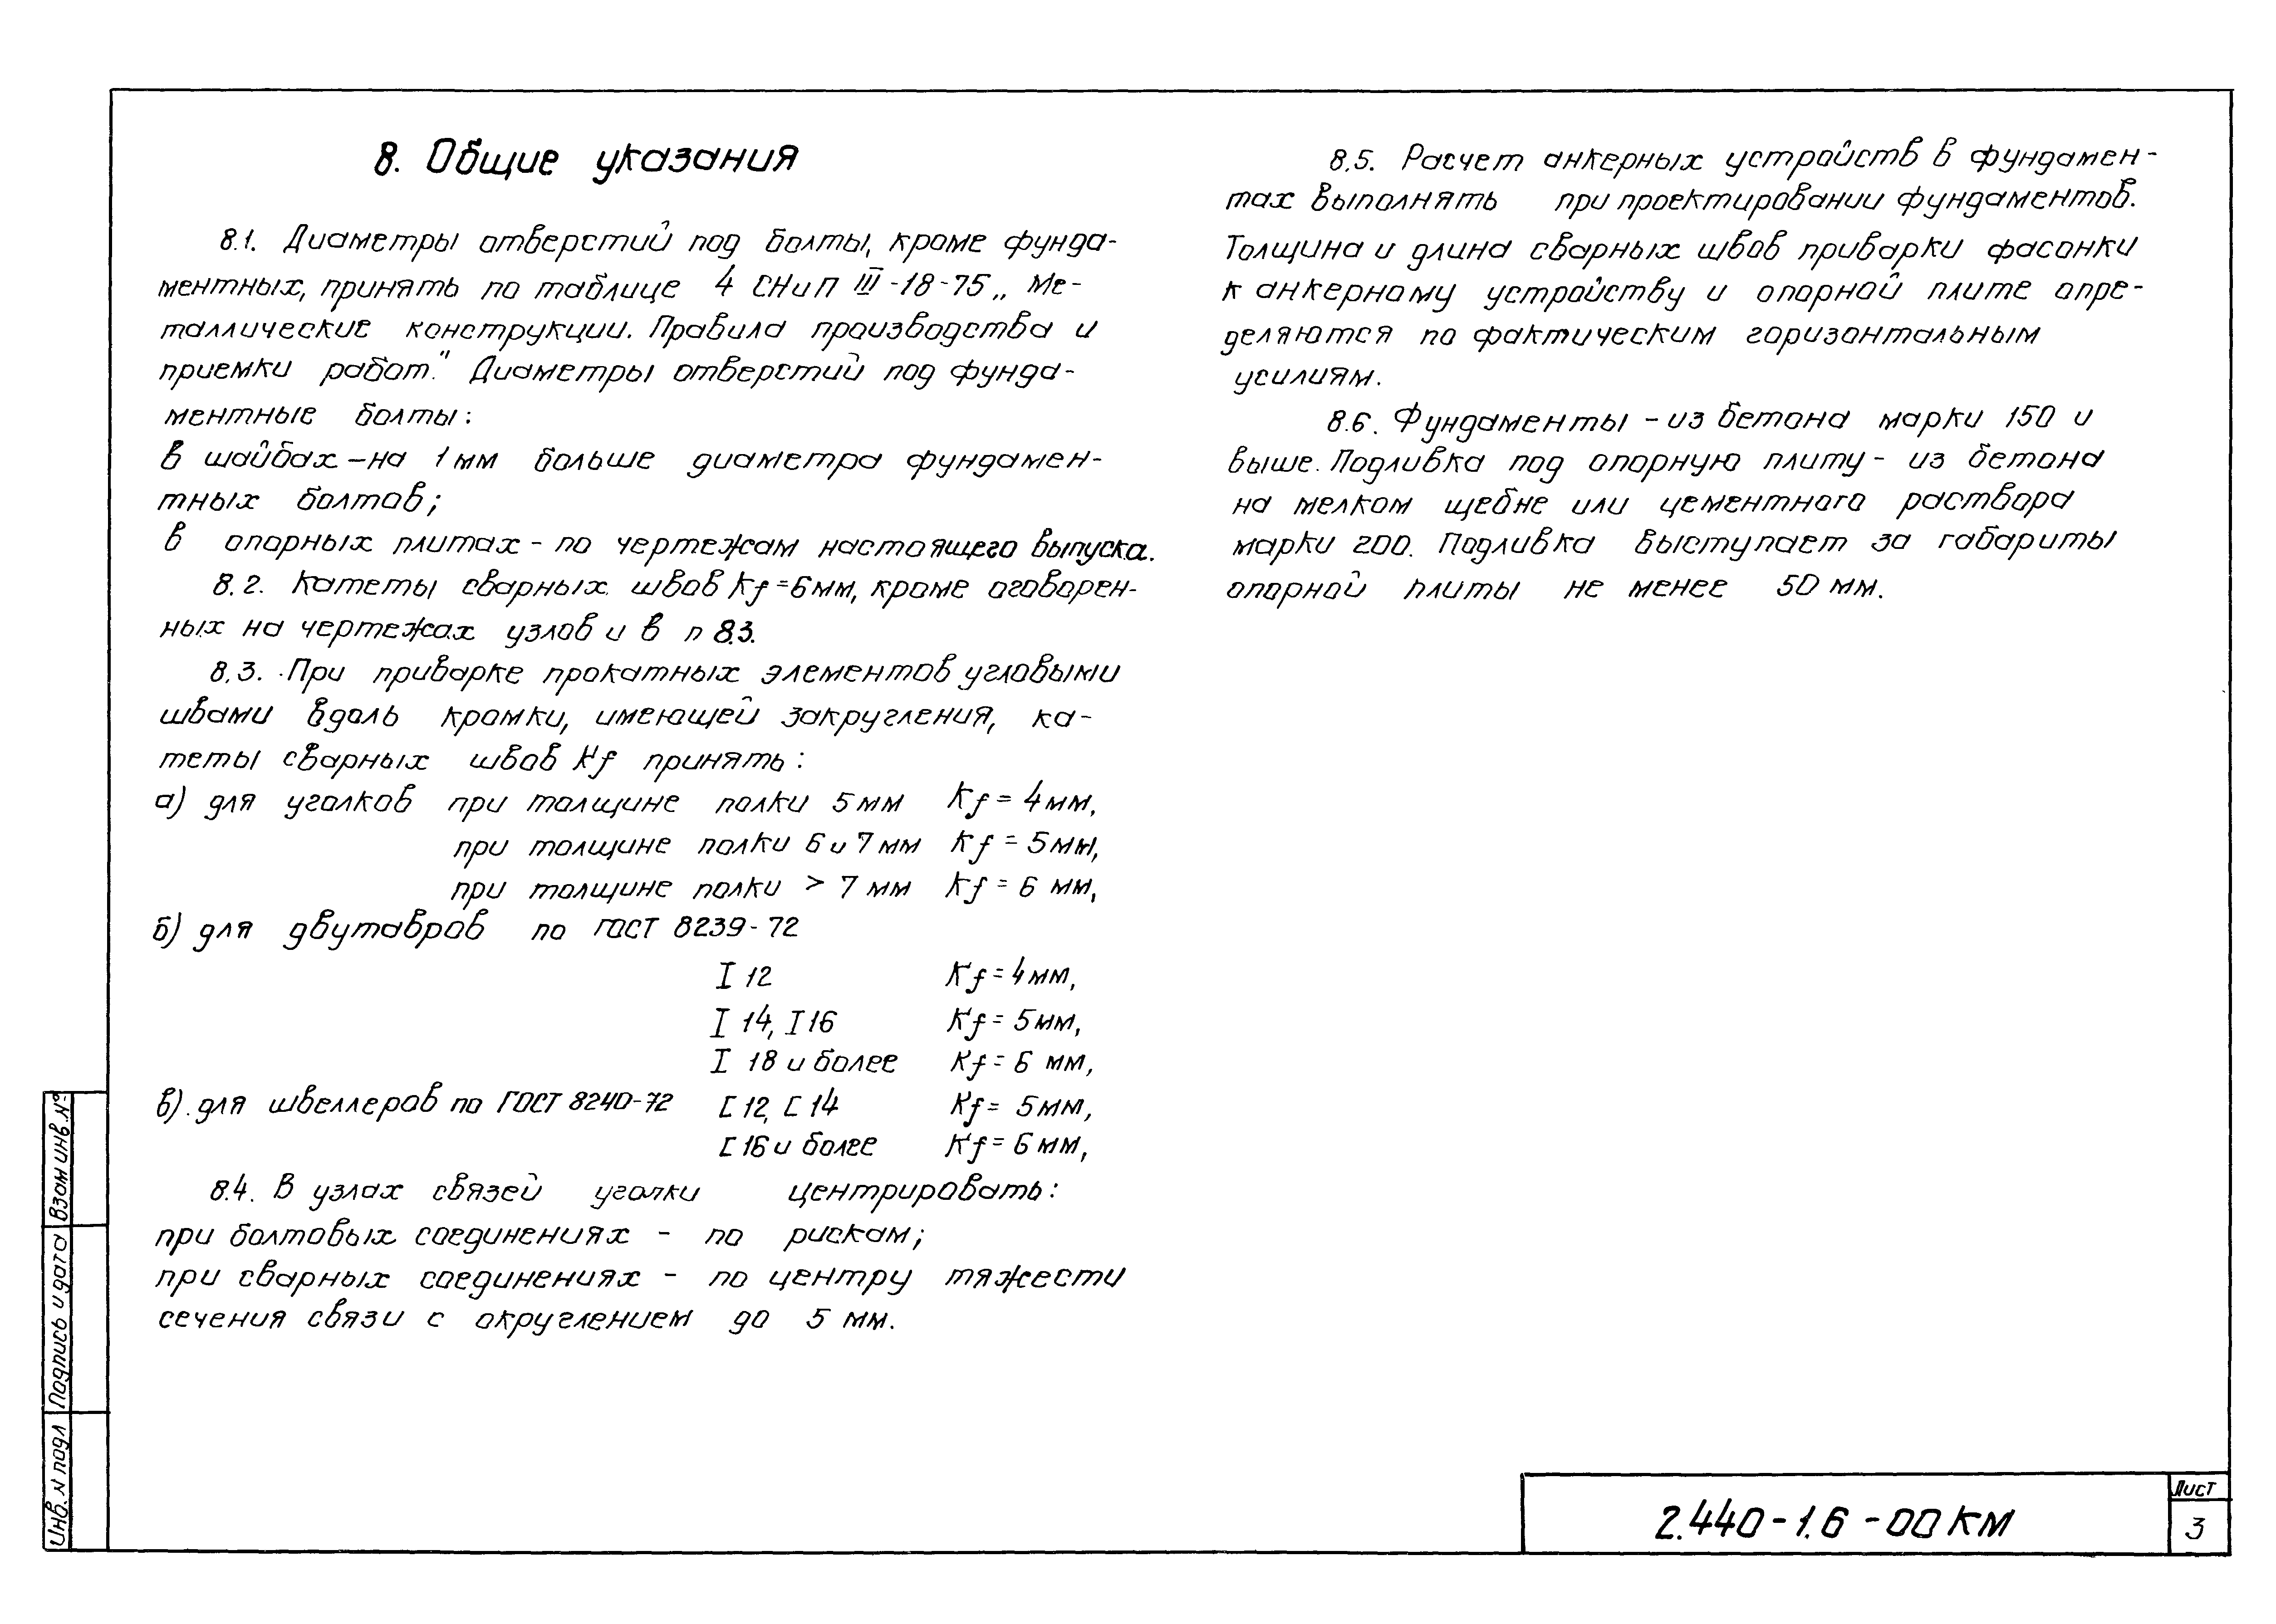 8. Общие указания
8.1. Диаметры отверстий под болты, кроме фунда-
ментных, принять по таблице 4 СНиП III-18-75 „Ме-
таллические конструкции. Правила производства и
приемки работ." Диаметры отверстий под фунда-
ментные болты:
в шайбах – на 1 мм больше диаметра фундамен-
тных болтов;
в опорных плитах – по чертежам настоящего выпуска.
8.2. Катеты сварных швов Kf = 6 мм, кроме оговорен-
ных на чертежах узлов и в п 8.3.
8.3. При приварке прокатных элементов угловыми
швами вдоль кромки, имеющей закругления, ка-
теты сварных швов Kf принять:
а) для уголков при толщине полки 5 мм Kf = 4 мм,
при толщине полки 6 и 7 мм Kf = 5 мм,
при толщине полки > 7 мм Kf = 6 мм,
б) для двутавров по ГОСТ 8239-72
I 12 Kf = 4 мм,
I 14, I 16 Kf = 5 мм,
I 18 и более Kf = 6 мм,
в) для швеллеров по ГОСТ 8240-72 [ 12, [ 14 Kf = 5 мм,
[ 16 и более Kf = 6 мм,
8.4. В узлах связей уголки центрировать:
при болтовых соединениях – по рискам;
при сварных соединениях – по центру тяжести
сечения связи с округлением до 5 мм.
8.5. Расчет анкерных устройств в фундамен-
тах выполнять при проектировании фундаментов.
Толщина и длина сварных швов приварки фасонки
к анкерному устройству и опорной плите опре-
деляются по фактическим горизонтальным
усилиям.
8.6. Фундаменты – из бетона марки 150 и
выше. Подливка под опорную плиту – из бетона
на мелком щебне или цементного раствора
марки 200. Подливка выступает за габариты
опорной плиты не менее 50 мм.
Взам инв. №
Подпись и дата
Инв. N подл
2.440-1.6-00КМ
Лист
3